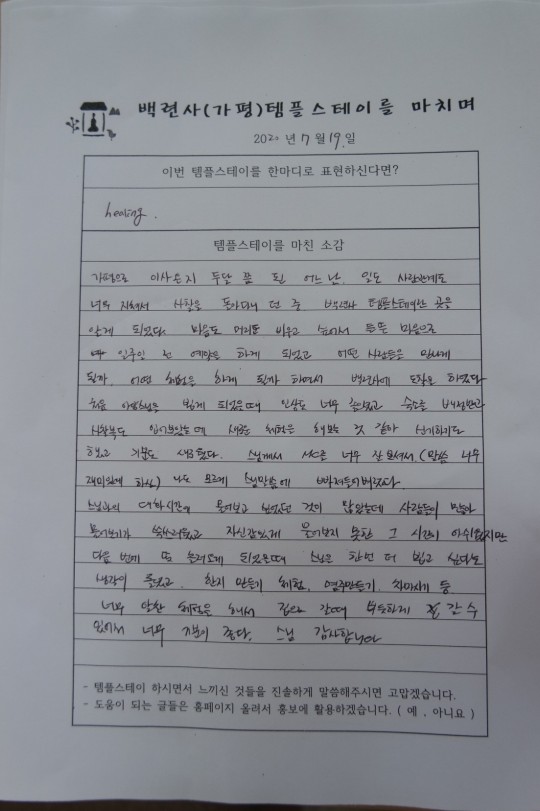 백련사(가평)템플스테이를 마치며
2020 년 7 월 19. 일
이번 템플스테이를 한마디로 표현하신다면?
healing.
템플스테이를 마친 소감
가평으로 이사온지 두달 쯤 된 어느 날. 일도 사람관계도
너무 지쳐서 사찰을 돌아다니 던 중 백련사 템플스테이라는 곳을
알게 되었다. 마음도 머리도 비우고 싶어서 들뜬 마음으로
일주일 전 예약을 하게 되었고 어떤 사람들을 만나게
될까. 어떤 체험을 하게 될까 하면서 백련사에 도착을 하였다
처음 스님을 뵙게 되었을때 인상도 너무 좋았고 숙소를 배정받고
사찰복도 입어보았는데 새로운 체험을 해보는 것 같아 신기하기도
했고 기분도 새로웠다. 스님께서 MC를 너무 잘 보셔서 (말씀 너무
재미있게 하심) 나도 모르게 스님말씀에 빠져들어버렸다.
스님과의 대화시간에 물어보고 싶었던 것이 많았는데 사람들이 많아
물어보기가 쑥스러웠고 자신감있게 물어보지 못한 그 시간이 아쉬웠지만
다음 번에 또 놀러오게 되었을때 스님을 한번 더 뵙고 싶다는
생각이 들었고. 한지 만들기 체험, 염주만들기. 차마시기 등
너무 알찬 체험을 해서 집에 갈때 뿌듯하게 갈 수
있어서 너무 기분이 좋다. 스님 감사합니다
- 템플스테이 하시면서 느끼신 것들을 진솔하게 말씀해주시면 고맙겠습니다.
- 도움이 되는 글들은 홈페이지 올려서 홍보에 활용하겠습니다. ( 예 , 아니요 )